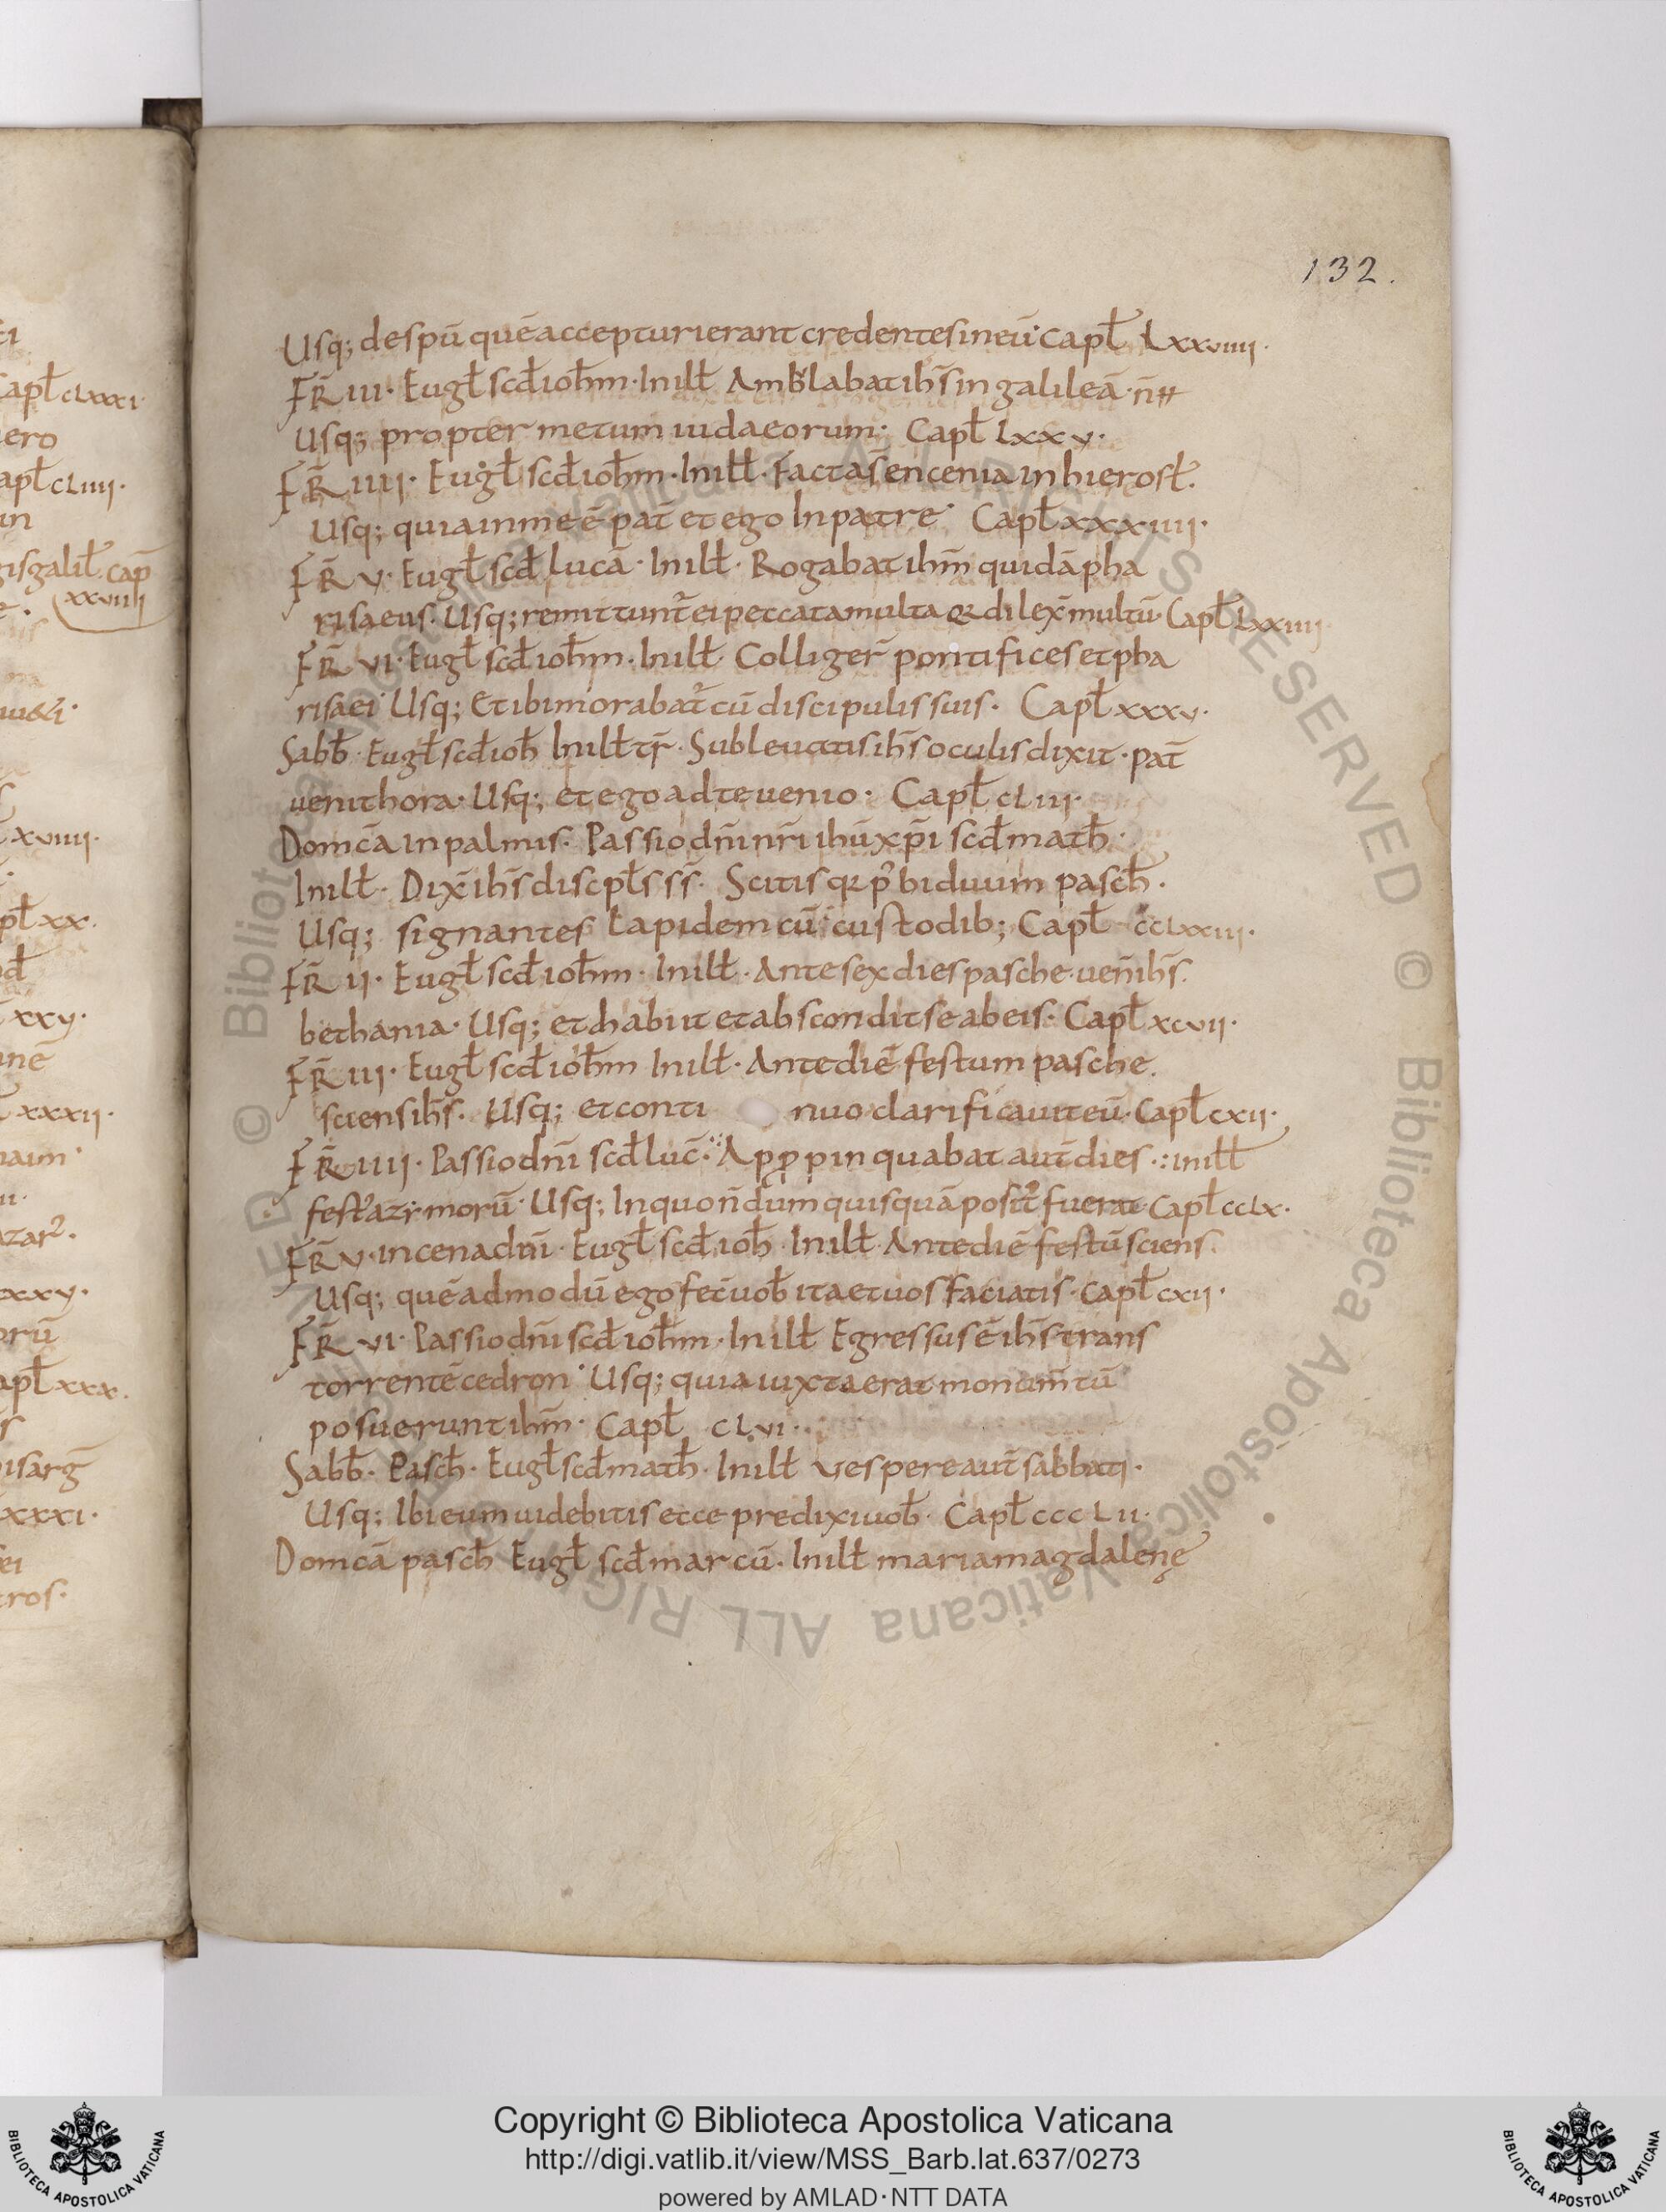 132.
Usq; despū quē accepturi erant credentes in eū· Capł Lxxviiii·
FR̄ iii· Eugł scd̄ ioħm· In ilł Amblabat ih̄s in galileā· n̄
Usq; propter metum iudaeorum· Capł Lxxv·
FR̄ iiii· Eugł scd̄ ioħm· In ilł· Facta s̄ encenia in hierosł·
Usq; quia in me ē pat̄ et ego In patre· Capł xxxiiii·
FR̄ v· Eugł scd̄ lucā· In ilł· Rogabat ihm̄ quidā pha
risaeus· Usq; remittunt̄ ei peccata multa qr dilex̄ multū· Capł Lxxiiii
FR̄ vi· Eugł scd̄ ioħm· In ilł· Colliger̄ pontifices et pha
risaei Usq; Et ibi morabat̄ cū discipulis suis· Capł xxxv·
Sabb̄· Eugł scd̄ ioħ In ilł tr̄· Subleuatis ih̄s oculis dixit· pat̄
uenit hora· Usq; et ego ad te uenio· Capł cLiii·
Domc̄a in palmis· Passio dn̄i nr̄i ihū xp̄i scd̄ matħ·
In ilł· Dix̄ ih̄s discpłs s̄s· Scitis qr p̄ biduum pascħ·
Usq; signantes Lapidem cū custodib; Capł ccLxxiii·
FR̄ ii· Eugł scd̄ ioħm· In ilł· Ante sex dies pasche· uen̄ ih̄s
bethania· Usq; et habiit et abscondit se ab eis· Capł xcvii·
FR̄ iii· Eugł scd̄ ioħm In ilł· Ante diē festum pasche
sciens ih̄s· Usq; et conti nuo clarificauit eū· Capł cxii·
FR̄ iiii· Passio dn̄i scd̄ luc̄· Appropinquabat aut̄ dies ·:in ilł
fest' azymorū· Usq; In quo n̄dum quisquā posit' fuerat· Capł ccLx·
FR̄ v· in cena dn̄i· Eugł scd̄ ioħ· In ilł· Ante diē festū sciens·
Usq; quē admodū ego fec̄ uob̄ ita et uos faciatis· Capł cxii·
FR̄ vi· Passio dn̄i scd̄ ioħm· In ilł Egressus ē ih̄s trans
torrentē cedron· Usq; quia iuxta erat monum̄tū
posuerunt ihm̄· Capł cLvi·
Sabb̄· Pascħ· Eugł scd̄ matħ· In ilł vespere aut̄ sabbati·
Usq; Ibi eum uidebitis ecce predixi uob̄· Capł cccLii·
Domc̄a pascħ Eugł scd̄ marcū· In ilł maria magdalenę
Copyright © Biblioteca Apostolica Vaticana
http://digi.vatlib.it/view/MSS_Barb.lat.637/0273
powered by AMLAD·NTT DATA